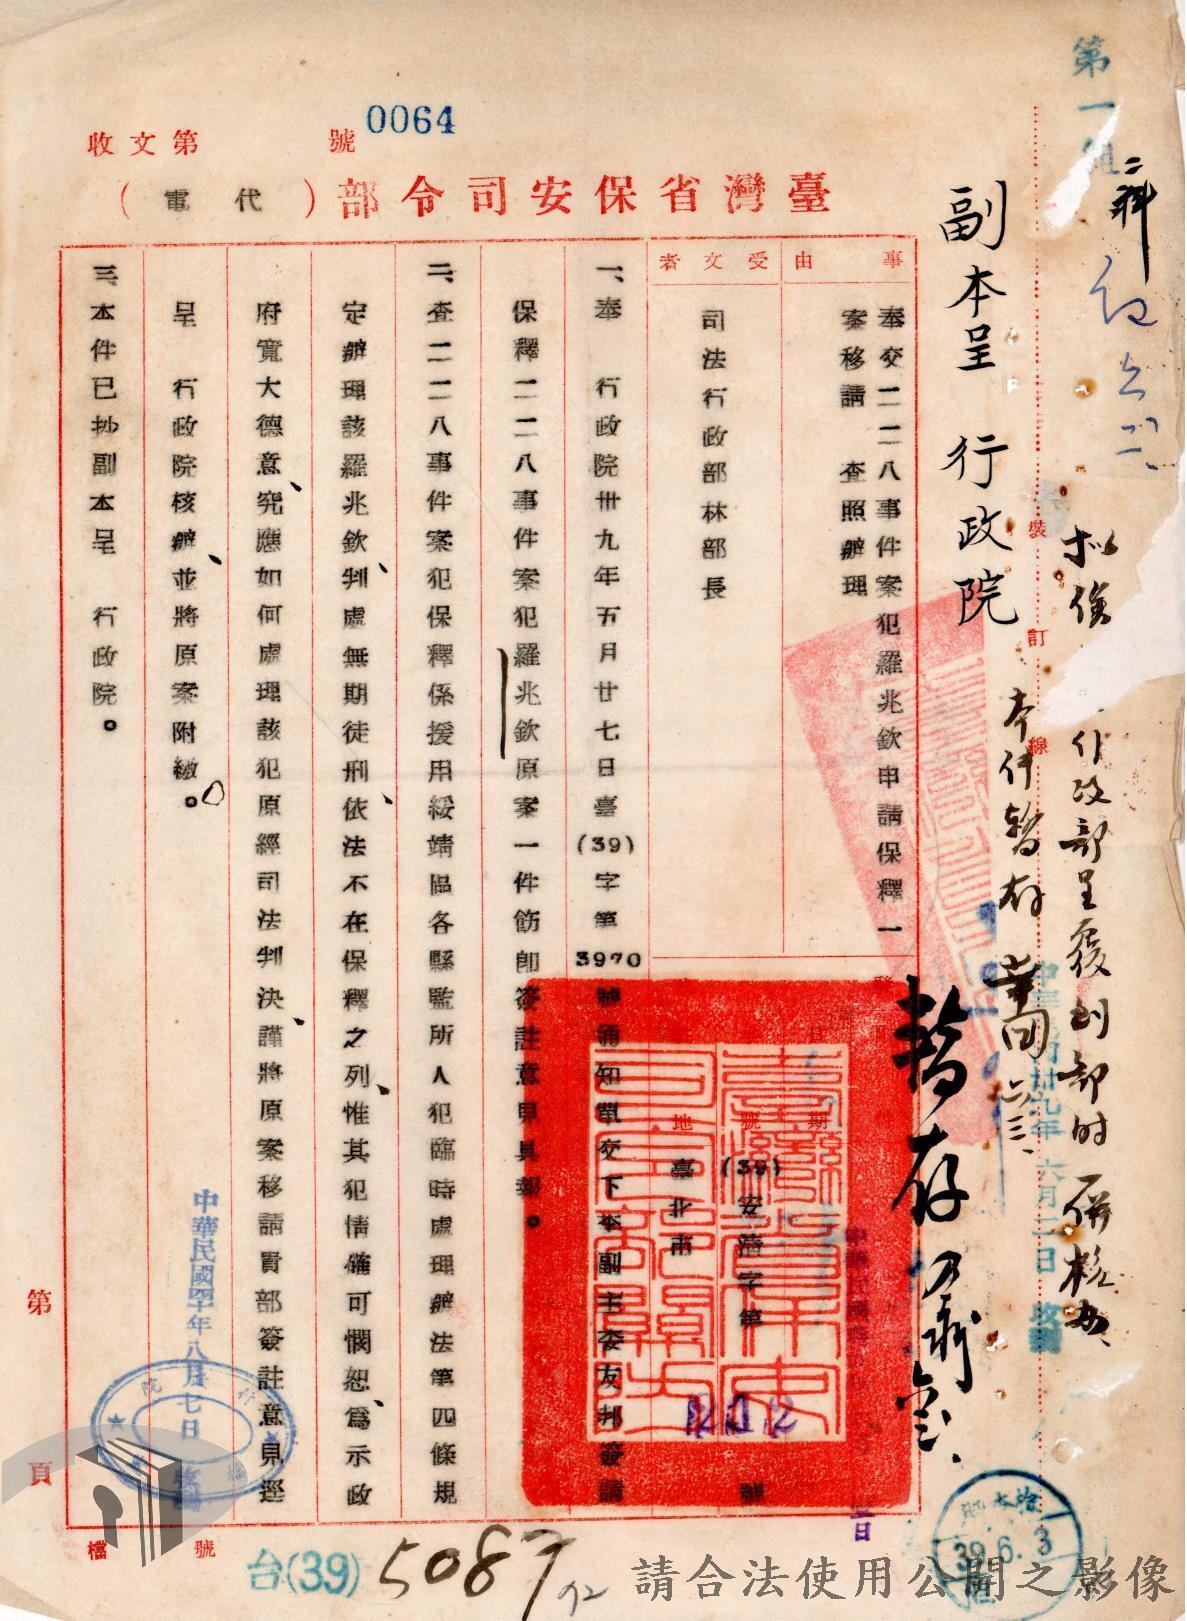 第一組
收文第 號 0064
臺灣省保安司令部(代電)
副本呈 行政院
事由
奉交二二八事件案犯羅兆欽申請保釋一
案移請 查照辦理
受文者
司法行政部林部長
一、奉 行政院卅九年五月廿七日臺(39)字第3970號通知單交下李副主委友邦簽請
保釋二二八事件案犯羅兆欽原案一件飭即簽註意見具報。
二、查二二八事件案犯保釋係援用綏靖區各縣監所人犯臨時處理辦法第四條規
定辦理該羅兆欽判處無期徒刑依法不在保釋之列、惟其犯情確可憫恕、為示政
府寬大德意、究應如何處理該犯原經司法判決、謹將原案移請貴部簽註意見逕
呈 行政院核辦、並將原案附繳。
三、本件已抄副本呈 行政院。
日期
號
(39)安潔字第 號
地
臺北市
裝
訂
線
本件暫存
暫存
行政部呈復到部時併核辦
中華民國卅九年六月二日收到
中華民國四十年八月七日
39.6.3
第 頁
檔 號
台(39) 5087
請合法使用公開之影像